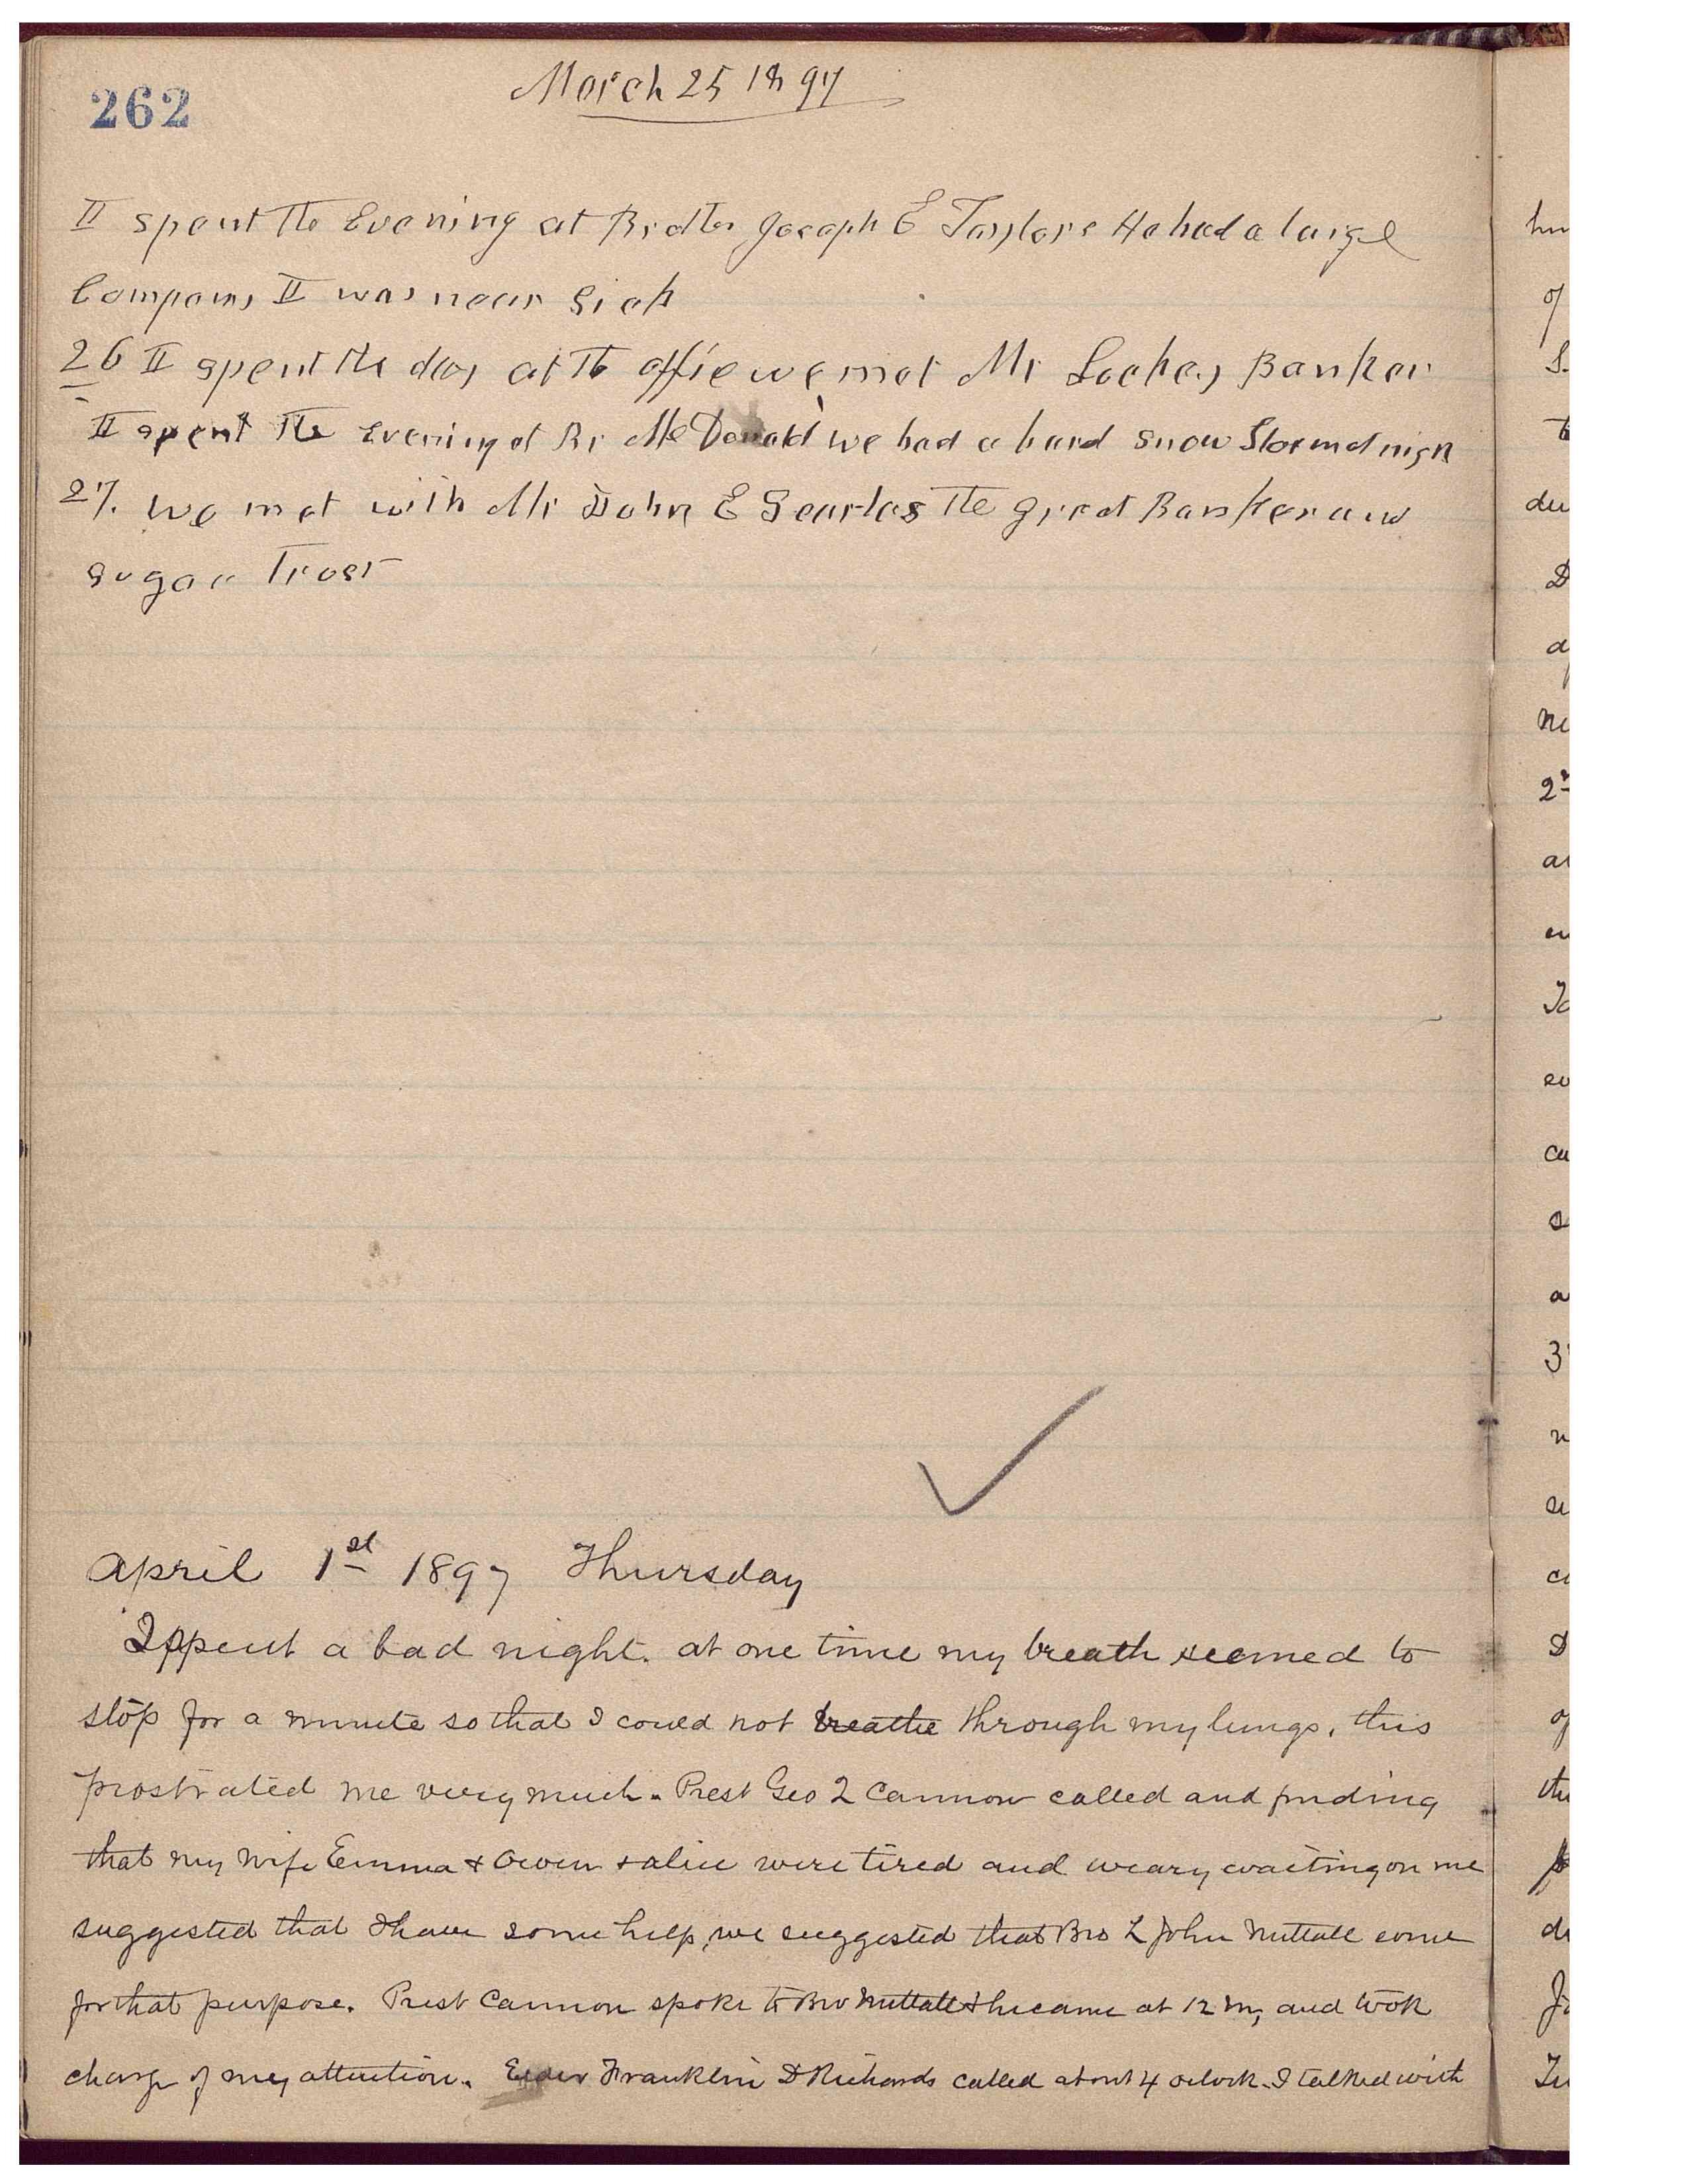 262
March 25 1897
II spent the Evening at Brother Joseph E Taylors He had a large
Company II was near Sick
26 II spent the day at the office we met Mr Banker
II spent the Evening at Br McDonald we had a hard snow Storm at night
27. we met with Mr John E Searles the great Banker and
sugar Trust
April 1st 1897 Thursday
I spent a bad night. at one time my breath seemed to
stop for a minute so that I could not breathe through my lungs, this
prostrated me very much. Prest Geo Q Cannon called and finding
that my wife Emma & Owen & alice were tired and weary waiting on me
suggested that I have some help, we suggested that Bro L John Nuttall come
for that purpose. Prest Cannon spoke to Bro Nuttall & he came at 12 m, and took
charge of my attention. Elder Franklin D Richards called about 4 oclock. I talked with